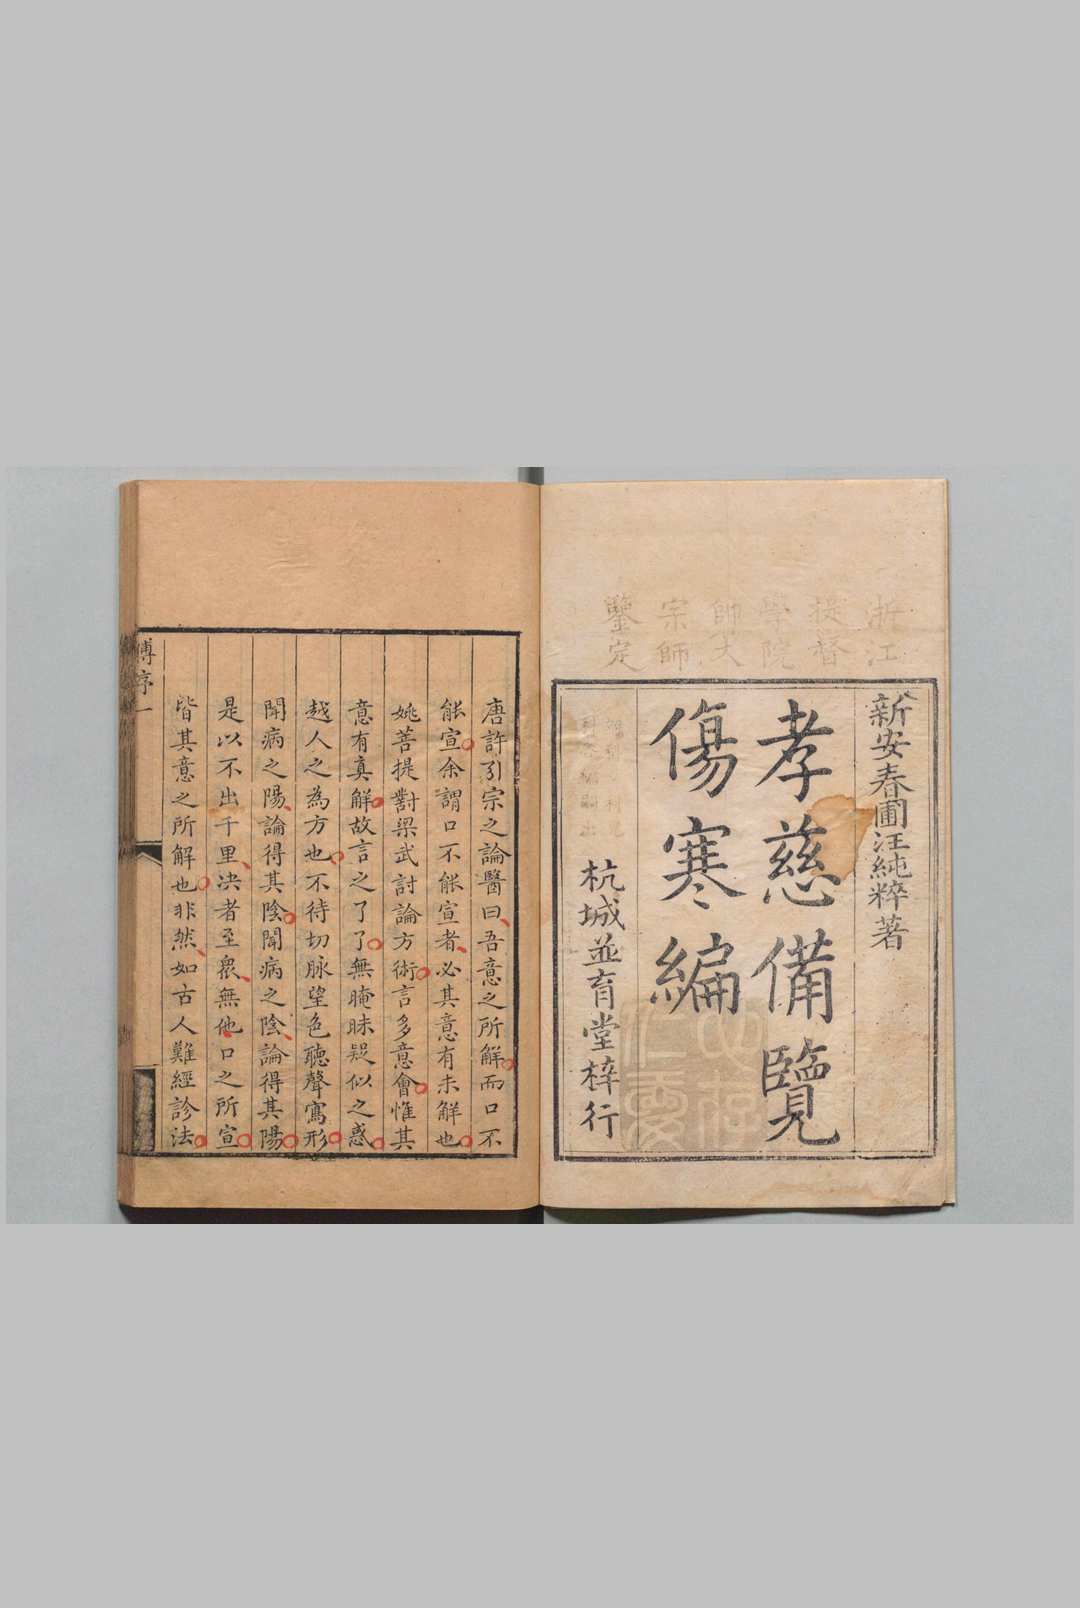 浙江
提督
學院
帥大
宗師
鑒定
新安春圃汪純粹著
孝慈備覽
傷寒編
杭城並育堂梓行
唐許引宗之論醫曰吾意之所解而口不
能宣余謂口不能宣者必其意有未解也
姚菩提對梁武討論方術言多意會惟其
意有真解故言之了了無晻昧疑似之惑
越人之為方也不待切脉望色聽聲寫形
聞病之陽論得其陰聞病之陰論得其陽
是以不出千里决者至衆無他口之所宣
皆其意之所解也非然如古人難經診法
傅序一